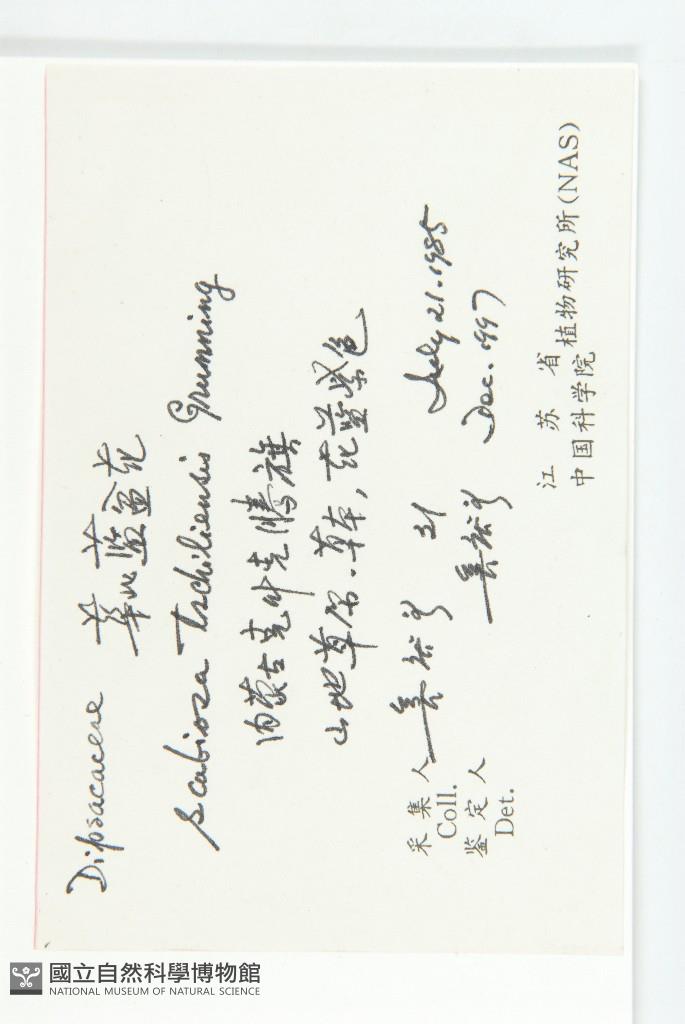 Dipsacaceae
华北蓝盆花
Scabiosa Tschiliensis Grunning
内蒙古克什克腾旗
山地草原.草本,花蓝紫色
采集人 31 July 21.1985
Coll.
鉴定人 Dec. 1997
Det.
江苏省
中国科学院 植物研究所(NAS)
國立自然科學博物館
NATIONAL MUSEUM OF NATURAL SCIENCE